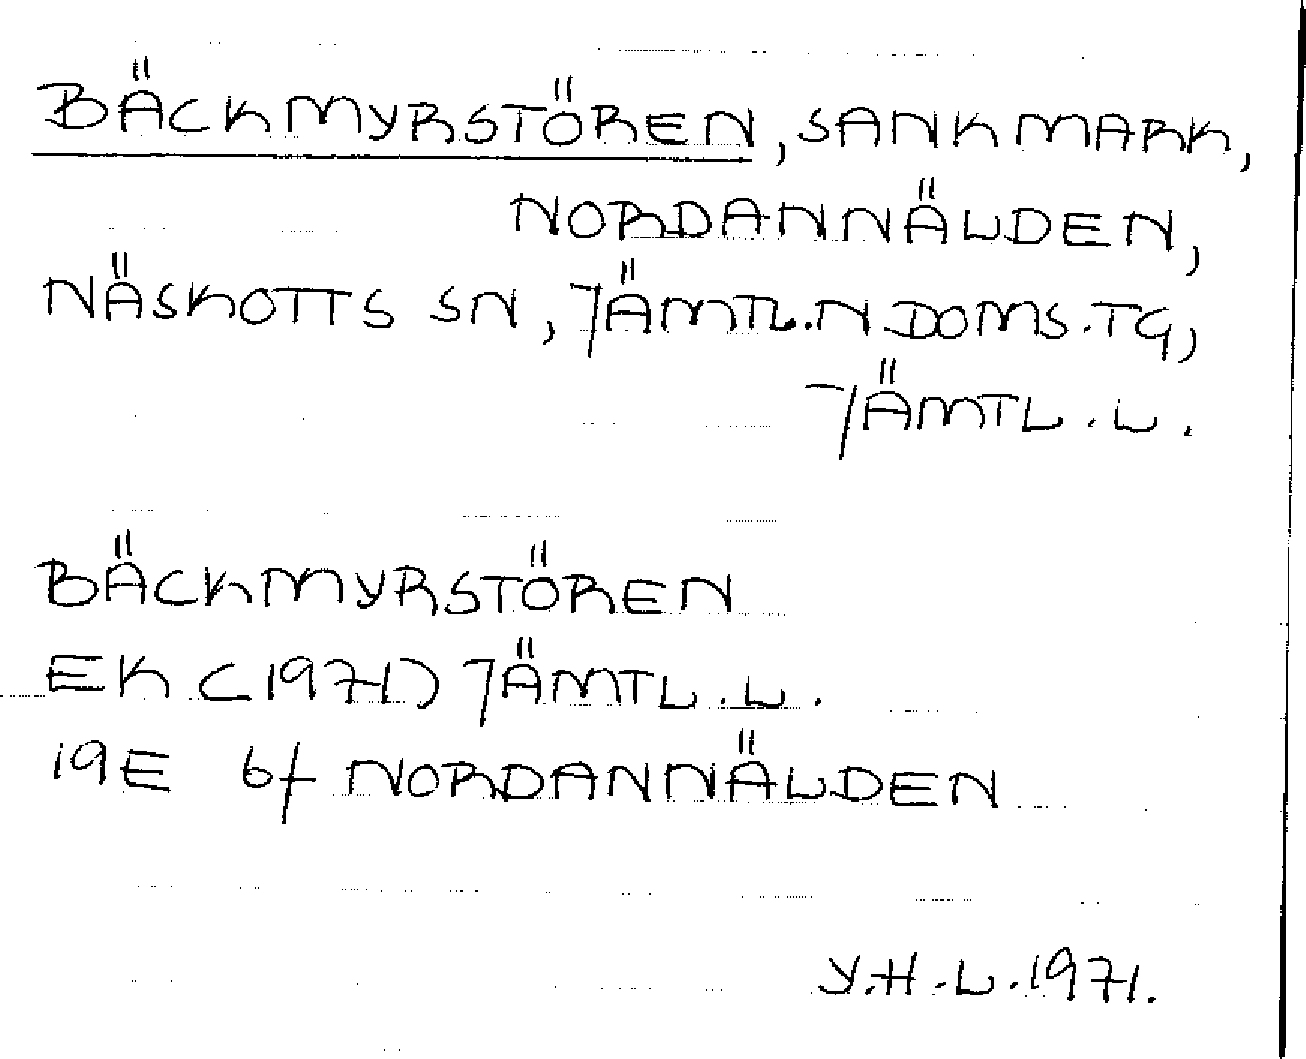 BÄCKMYRSTÖREN, SANKMARK,
NORDANNÄLDEN,
NÄSKOTTS SN, JÄMTL.N.DOMS.TG,
JÄMTL.L.
BÄCKMYRSTÖREN
EK (1971) JÄMTL.L.
19E 6f NORDANNÄLDEN
Y.H.L.1971.